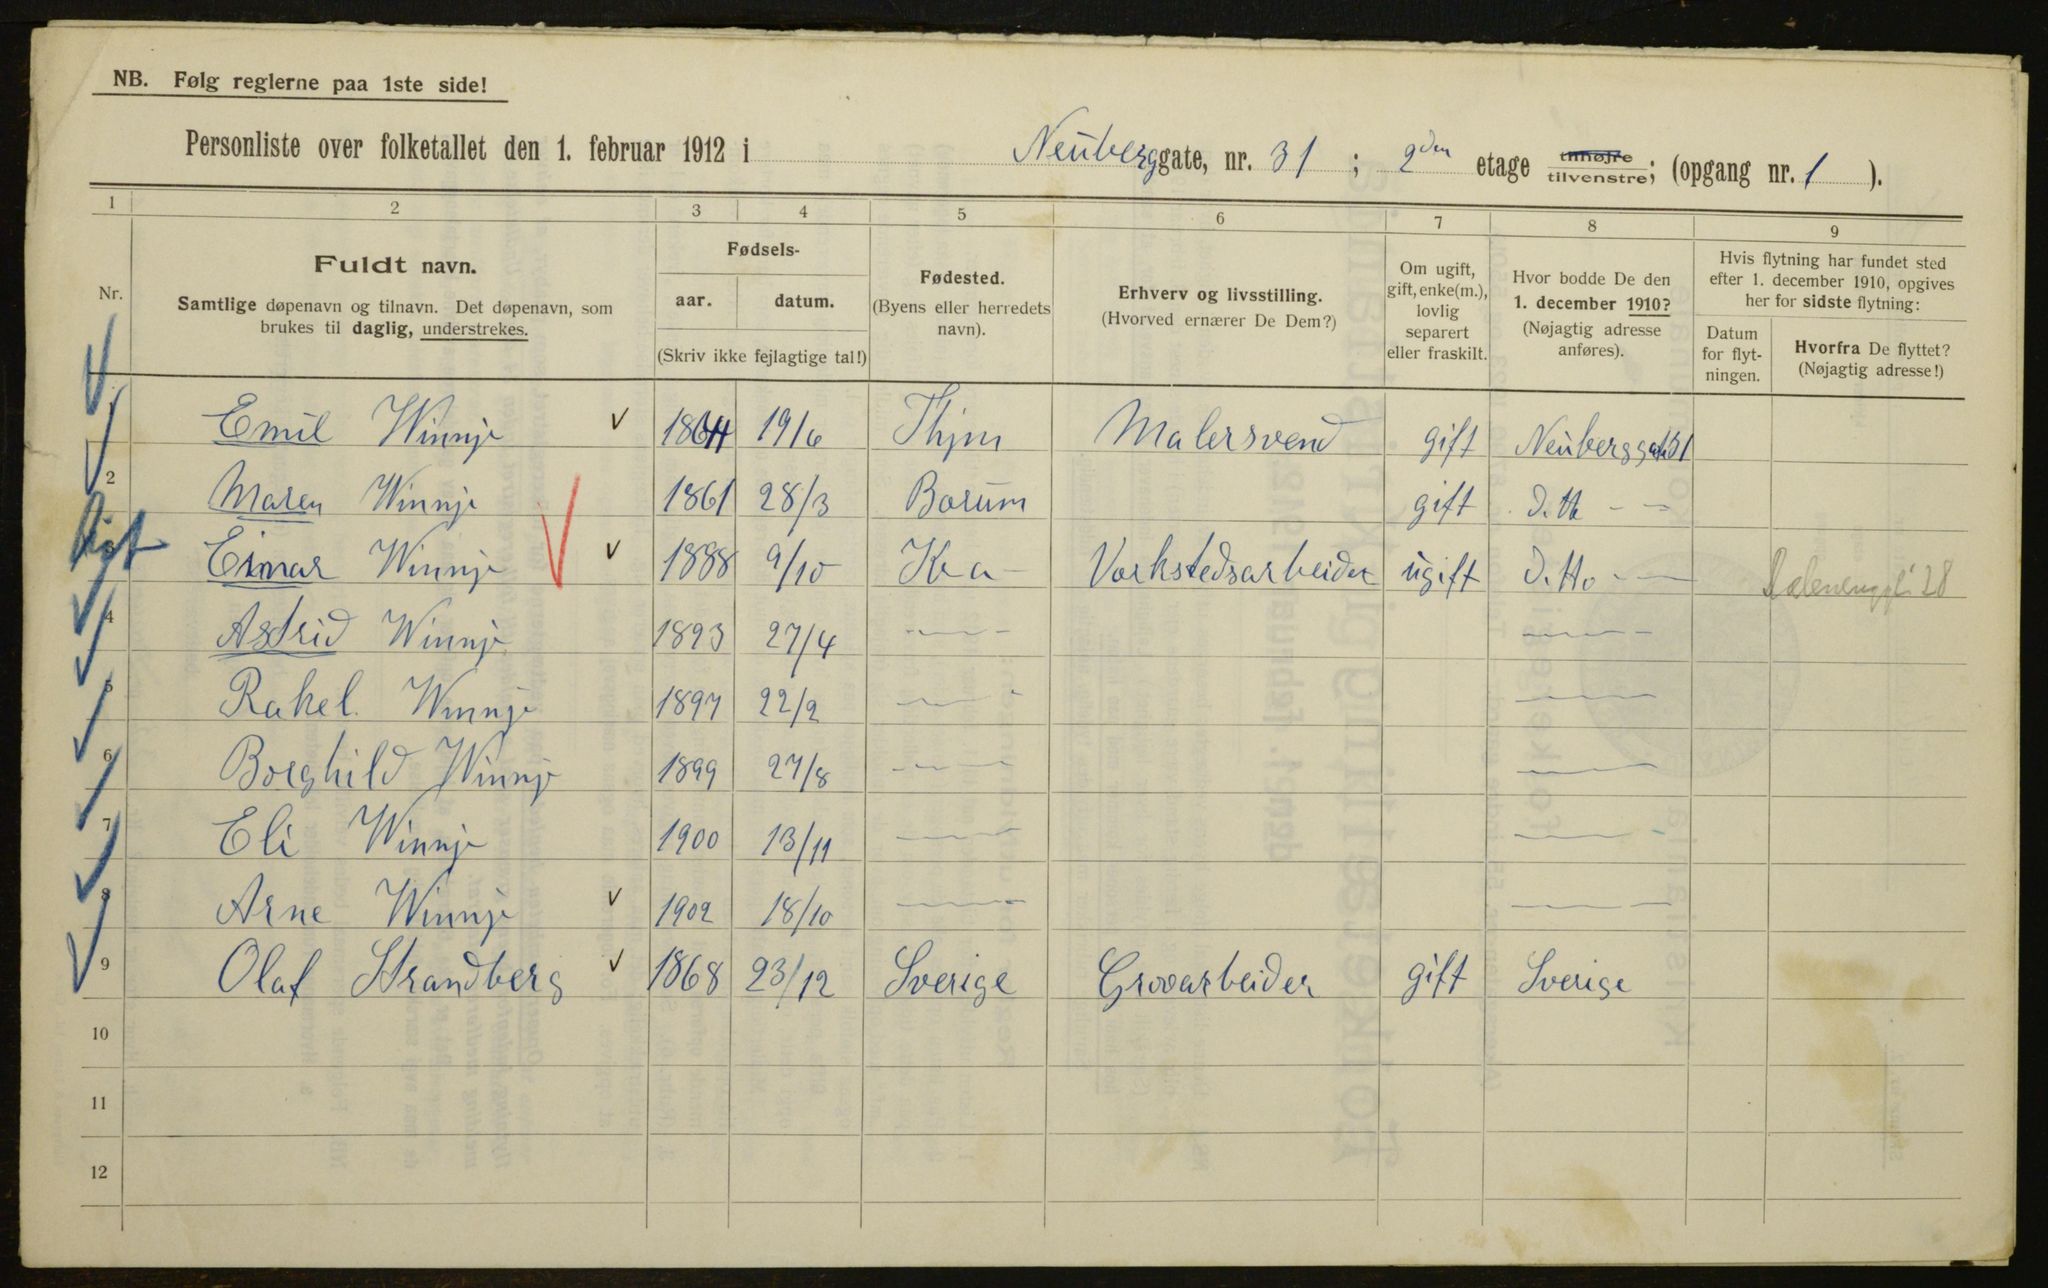 NB. Følg reglerne paa 1ste side!
Personliste over folketallet den 1. februar 1912 i Neuberggate, nr. 31 ; 2den etage tilhøjre tilvenstre; (opgang nr. 1 ).
1 2 3 4 5 6 7 8 9
Nr.
Fuldt navn.
Samtlige døpenavn og tilnavn. Det døpenavn, som
brukes til daglig, understrekes.
Fødsels-
aar. datum.
(Skriv ikke fejlagtige tal!)
Fødested.
(Byens eller herredets
navn).
Erhverv og livsstilling.
(Hvorved ernærer De Dem?)
Om ugift,
gift, enke(m.),
lovlig
separert
eller fraskilt.
Hvor bodde De den
1. december 1910?
(Nøjagtig adresse
anføres).
Hvis flytning har fundet sted
efter 1. december 1910, opgives
her for sidste flytning:
Datum
for flyt-
ningen.
Hvorfra De flyttet?
(Nøjagtig adresse!)
1 Emil Winnje 1864 19/6 Malersvend gift Neuberggt 31
2 Maren Winnje 1861 28/3 Barum gift D. tto - -
3 Einar Winnje 1888 9/10 Kra - Verkstedsarbeider ugift D. tto - -
4 Astrid Winnje 1893 27/4 -„- -„-
5 Rakel Winnje 1897 22/2 -„- -„-
6 Borghild Winnje 1899 27/8 -„- -„-
7 Eli Winnje 1900 13/11 -„- -„-
8 Arne Winnje 1902 18/10 -„- -„-
9 Olaf Strandberg 1868 23/12 Sverige Grovarbeider gift Sverige
10
11
12